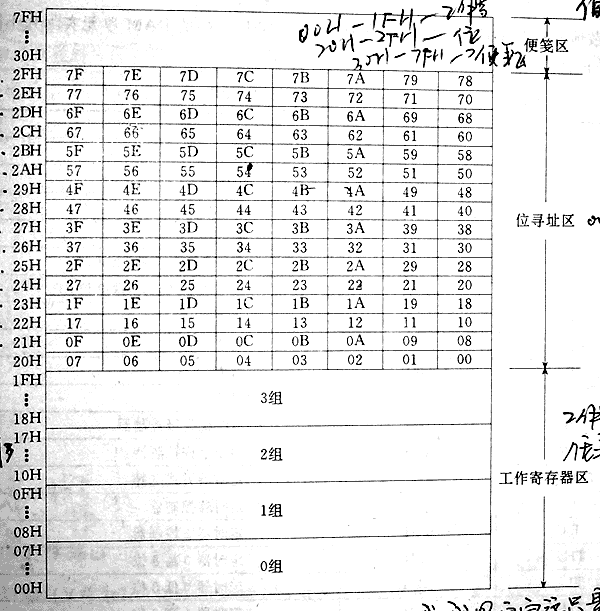 7FH
⋮
30H
00H—1FH—工作寄
20H—2FH—位
30H—7FH—便笺区
便笺区
2FH 7F 7E 7D 7C 7B 7A 79 78
2EH 77 76 75 74 73 72 71 70
2DH 6F 6E 6D 6C 6B 6A 69 68
2CH 67 66 65 64 63 62 61 60
2BH 5F 5E 5D 5C 5B 5A 59 58
2AH 57 56 55 54 53 52 51 50
29H 4F 4E 4D 4C 4B 4A 49 48
28H 47 46 45 44 43 42 41 40
位寻址区
27H 3F 3E 3D 3C 3B 3A 39 38
26H 37 36 35 34 33 32 31 30
25H 2F 2E 2D 2C 2B 2A 29 28
24H 27 26 25 24 23 22 21 20
23H 1F 1E 1D 1C 1B 1A 19 18
22H 17 16 15 14 13 12 11 10
21H 0F 0E 0D 0C 0B 0A 09 08
20H 07 06 05 04 03 02 01 00
1FH
⋮
3组
18H
17H
⋮
2组
10H
工作寄存器区
0FH
⋮
1组
08H
07H
⋮
0组
00H